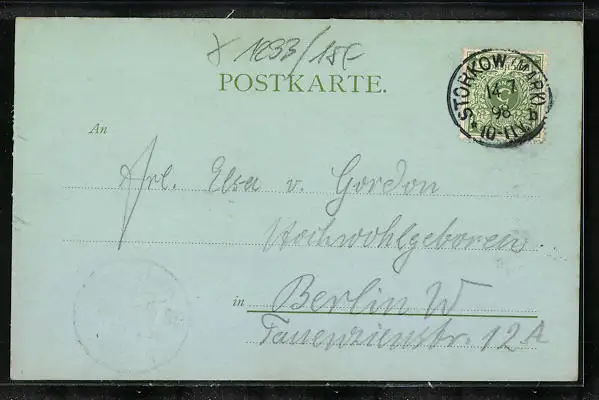 1233/18€
POSTKARTE.
STORKOW (MARK)
14 7
98
10-11V.
An
Frl. Elsa v. Gordon
Hochwohlgeboren.
in Berlin W
Tauenzienstr. 12A